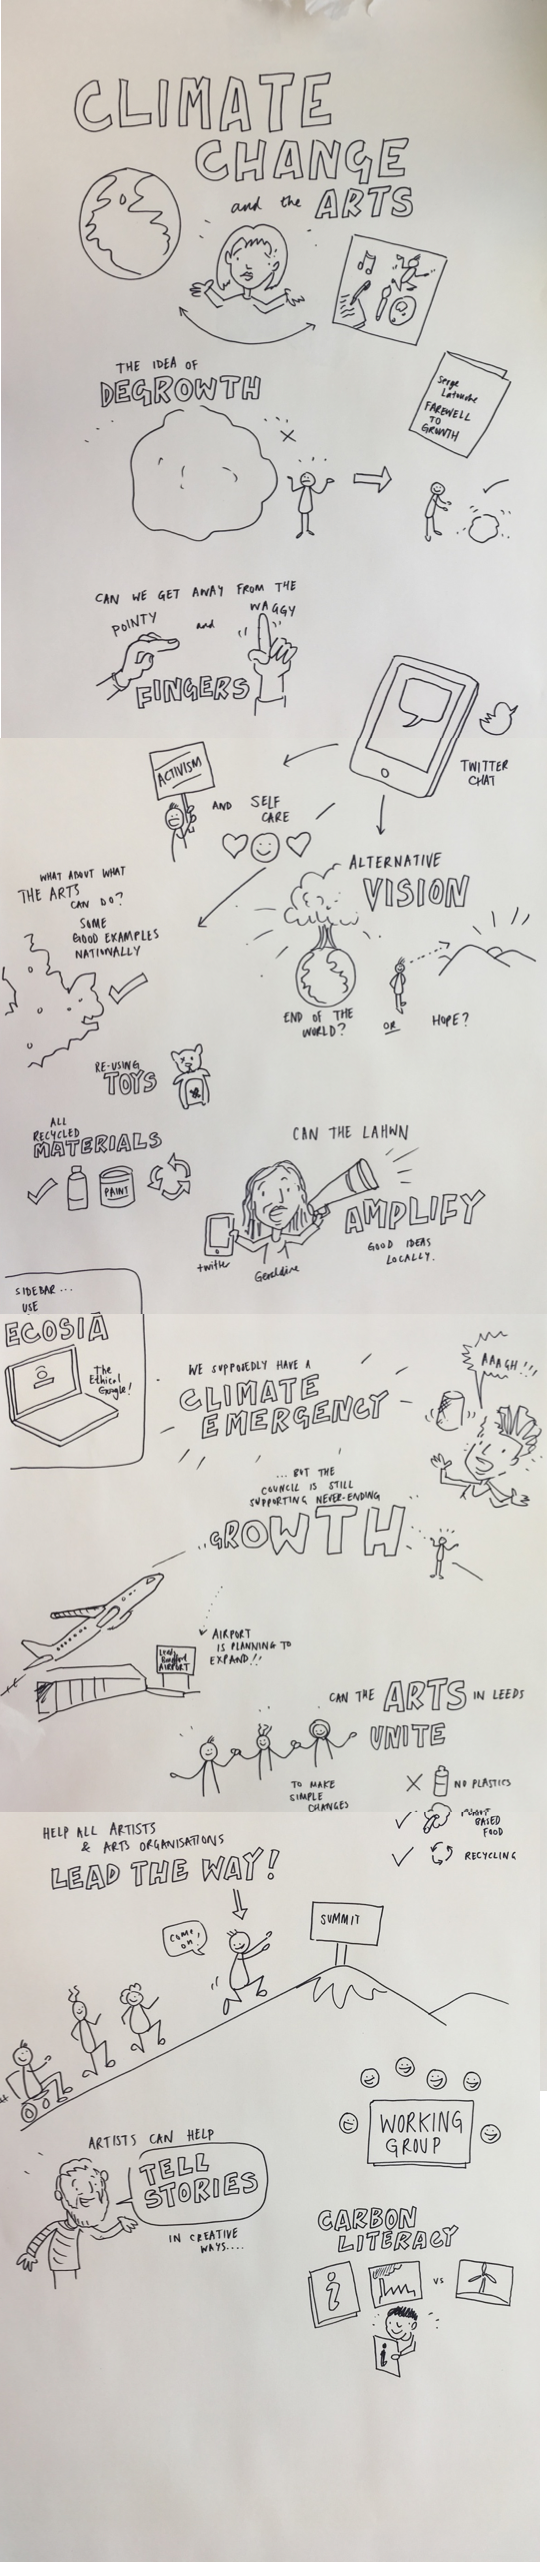 CLIMATE
CHANGE
and the ARTS
THE IDEA OF
DEGROWTH
Serge
Latouche
FAREWELL
TO
GROWTH
CAN WE GET AWAY FROM THE
POINTY and WAGGY
FINGERS
TWITTER
CHAT
ACTIVISM
AND SELF
CARE
ALTERNATIVE
VISION
END OF THE
WORLD? OR HOPE?
WHAT ABOUT WHAT
THE ARTS
CAN DO?
SOME
GOOD EXAMPLES
NATIONALLY
RE-USING
TOYS
ALL
RECYCLED
MATERIALS
PAINT
CAN THE LAHWN
AMPLIFY
GOOD IDEAS
LOCALLY.
twitter
Geraldine
SIDEBAR...
USE
ECOSIA
The
Ethical
Google!
WE SUPPOSEDLY HAVE A
CLIMATE
EMERGENCY
AAAGH!!!
...BUT THE
COUNCIL IS STILL
SUPPORTING NEVER-ENDING
..GROWTH..
AIRPORT
IS PLANNING TO
EXPAND!!
Leeds
Bradford
AIRPORT
CAN THE ARTS IN LEEDS
UNITE
TO MAKE
SIMPLE
CHANGES
NO PLASTICS
BASED
FOOD
RECYCLING
HELP ALL ARTISTS
& ARTS ORGANISATIONS
LEAD THE WAY!
COME
ON!
SUMMIT
WORKING
GROUP
ARTISTS CAN HELP
TELL
STORIES
IN CREATIVE
WAYS....
CARBON
LITERACY
i
VS
i